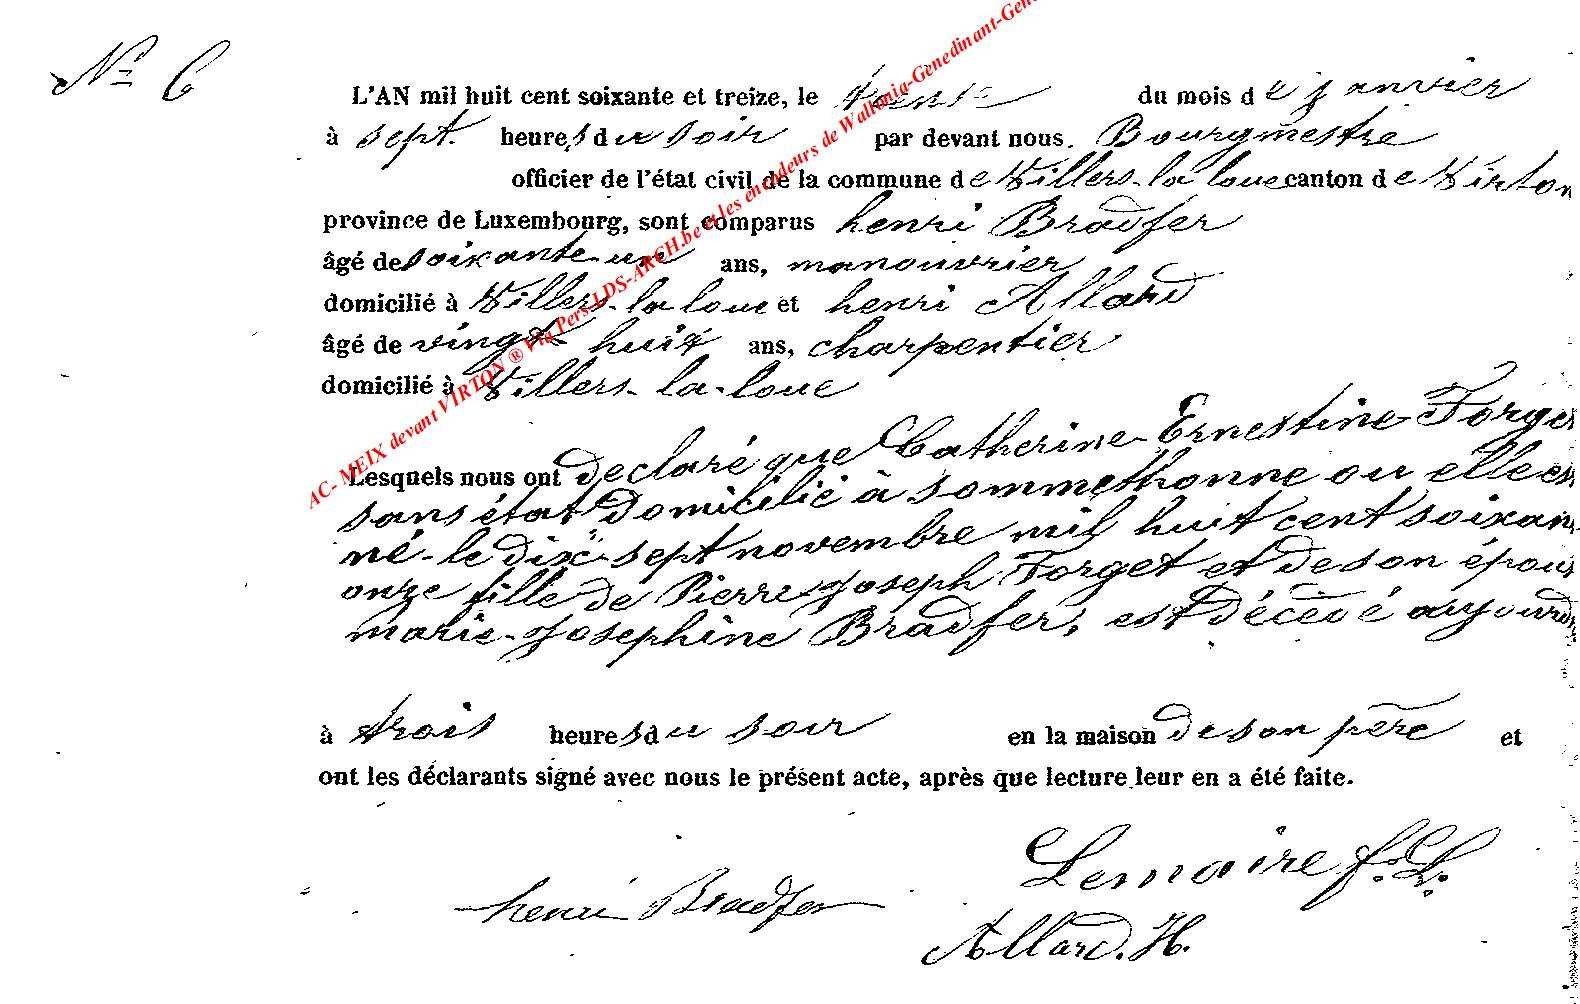 Nº 6
L'AN mil huit cent soixante et treize, le trente du mois de janvier
à sept heures du soir par devant nous. Bourgmestre
officier de l'état civil de la commune de Villers-la loue canton de Virton
province de Luxembourg, sont comparus henri Bradfer
âgé de soixante-un ans, manouvrier
domicilié à Villers-la loue et henri Allard
âgé de vingt huit ans, charpentier
domicilié à Villers-la-loue
Lesquels nous ont declaré que Catherine-Ernestine-Forget
sans état domicilié à Sommethonne ou elle es
né-le dix-sept novembre mil huit cent soixan
onze fille de Pierre-Joseph Forget et de son épous
marie-Josephine Bradfer, est décédé aujourd
à trois heures du soir en la maison de son père et
ont les déclarants signé avec nous le présent acte, après que lecture leur en a été faite.
Lemaire f. L.
henri Bradfer
Allard. H.
AC- MEIX devant VIRTON ® Via Pers-LDS-ARCH.be et les encodeurs de Wallonia-Genedinant-Gene